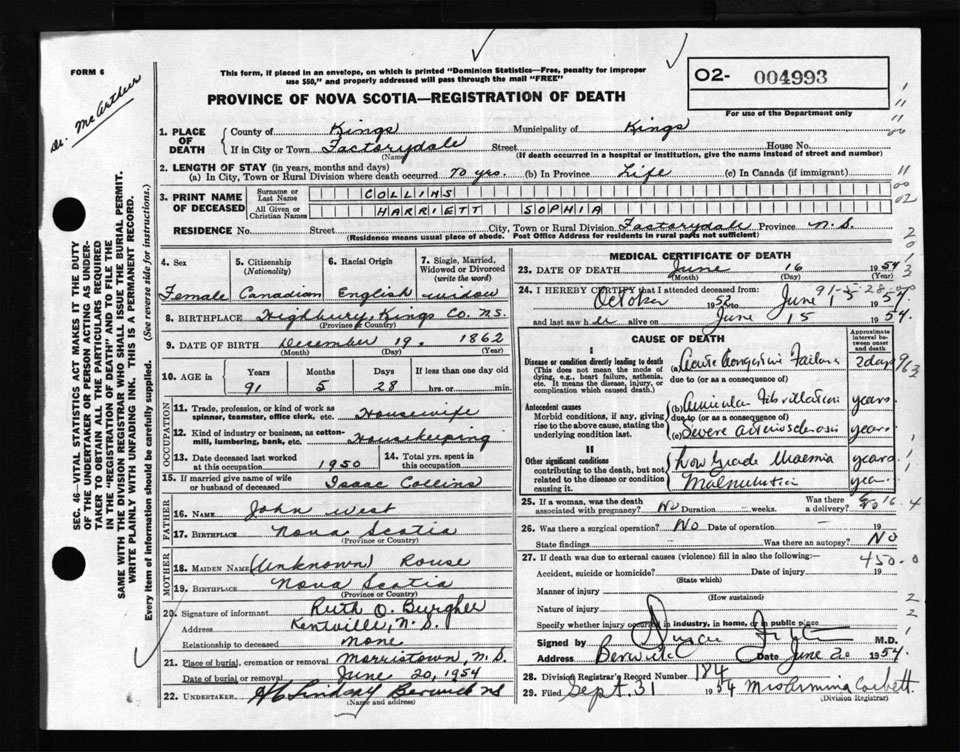 FORM 6
Dr. McArthur
This form, if placed in an envelope, on which is printed "Dominion Statistics—Free, penalty for improper
use $50," and properly addressed will pass through the mail "FREE"
PROVINCE OF NOVA SCOTIA—REGISTRATION OF DEATH
O2- 004993
For use of the Department only
1. PLACE OF DEATH
County of Kings Municipality of Kings
If in City or Town Factorydale Street House No.
(Name) (If death occurred in a hospital or institution, give the name instead of street and number)
2. LENGTH OF STAY (in years, months and days)
(a) In City, Town or Rural Division where death occurred 70 yrs. (b) In Province Life (c) In Canada (if immigrant)
3. PRINT NAME OF DECEASED
Surname or Last Name COLLINS
All Given or Christian Names HARRIETT SOPHIA
RESIDENCE No. Street City, Town or Rural Division Factorydale Province N.S.
(Residence means usual place of abode. Post Office Address for residents in rural parts not sufficient)
4. Sex
Female
5. Citizenship
(Nationality)
Canadian
6. Racial Origin
English
7. Single, Married,
Widowed or Divorced
(write the word)
widow
8. BIRTHPLACE Highbury, Kings Co. N.S.
(Province or Country)
9. DATE OF BIRTH December 19. 1862
(Month) (Day) (Year)
10. AGE in Years Months Days If less than one day old
91 5 28 hrs. or min.
OCCUPATION
11. Trade, profession, or kind of work as
spinner, teamster, office clerk, etc. Housewife
12. Kind of industry or business, as cotton-
mill, lumbering, bank, etc. Housekeeping
13. Date deceased last worked
at this occupation 1950
14. Total yrs. spent in
this occupation
15. If married give name of wife
or husband of deceased Isaac Collins
FATHER
16. NAME John West
17. BIRTHPLACE Nova Scotia
(Province or Country)
MOTHER
18. MAIDEN NAME (Unknown) Rouse
19. BIRTHPLACE Nova Scotia
(Province or Country)
20. Signature of informant Ruth O. Burgher
Address Kentville, N.S.
Relationship to deceased None
21. Place of burial, cremation or removal Morristown, N.S.
Date of burial or removal June 20, 1954
22. UNDERTAKER Lindsay Berwick NS
(Name and address)
MEDICAL CERTIFICATE OF DEATH
23. DATE OF DEATH June 16 1954
(Month) (Day) (Year)
91-5-28-
24. I HEREBY CERTIFY that I attended deceased from:
October 1952 to June 15 1954.
and last saw her alive on June 15 1954.
CAUSE OF DEATH
Approximate interval between onset and death
I
Disease or condition directly leading to death
(This does not mean the mode of
dying, e.g., heart failure, asthenia,
etc. It means the disease, injury, or
complication which caused death.)
(a) Acute Congestive Failure 2 days
due to (or as a consequence of)
Antecedent causes
Morbid conditions, if any, giving
rise to the above cause, stating the
underlying condition last.
(b) Auricular Fibrillation years.
due to (or as a consequence of)
(c) Severe Arteriosclerosis years
II
Other significant conditions
contributing to the death, but not
related to the disease or condition
causing it.
Low Grade Uraemia years
Malnutrition year
25. If a woman, was the death
associated with pregnancy? No Duration weeks. Was there a delivery? No
26. Was there a surgical operation? No Date of operation 19
State findings Was there an autopsy? No
27. If death was due to external causes (violence) fill in also the following:—
450.0
Accident, suicide or homicide? Date of injury 19
(State which)
Manner of injury
(How sustained)
Nature of injury
Specify whether injury occurred in industry, in home, or in public place
Signed by M.D.
Address Berwick Date June 20 1954.
28. Division Registrar's Record Number 184
29. Filed Sept. 31 1954 Mrs Armina Corbett
(Division Registrar)
SEC. 46—VITAL STATISTICS ACT MAKES IT THE DUTY
OF THE UNDERTAKER OR PERSON ACTING AS UNDER-
TAKER TO OBTAIN ALL THE PARTICULARS REQUIRED
IN THE "REGISTRATION OF DEATH" AND TO FILE THE
SAME WITH THE DIVISION REGISTRAR WHO SHALL ISSUE THE BURIAL PERMIT.
WRITE PLAINLY WITH UNFADING INK. THIS IS A PERMANENT RECORD.
Every item of information should be carefully supplied. (See reverse side for instructions.)